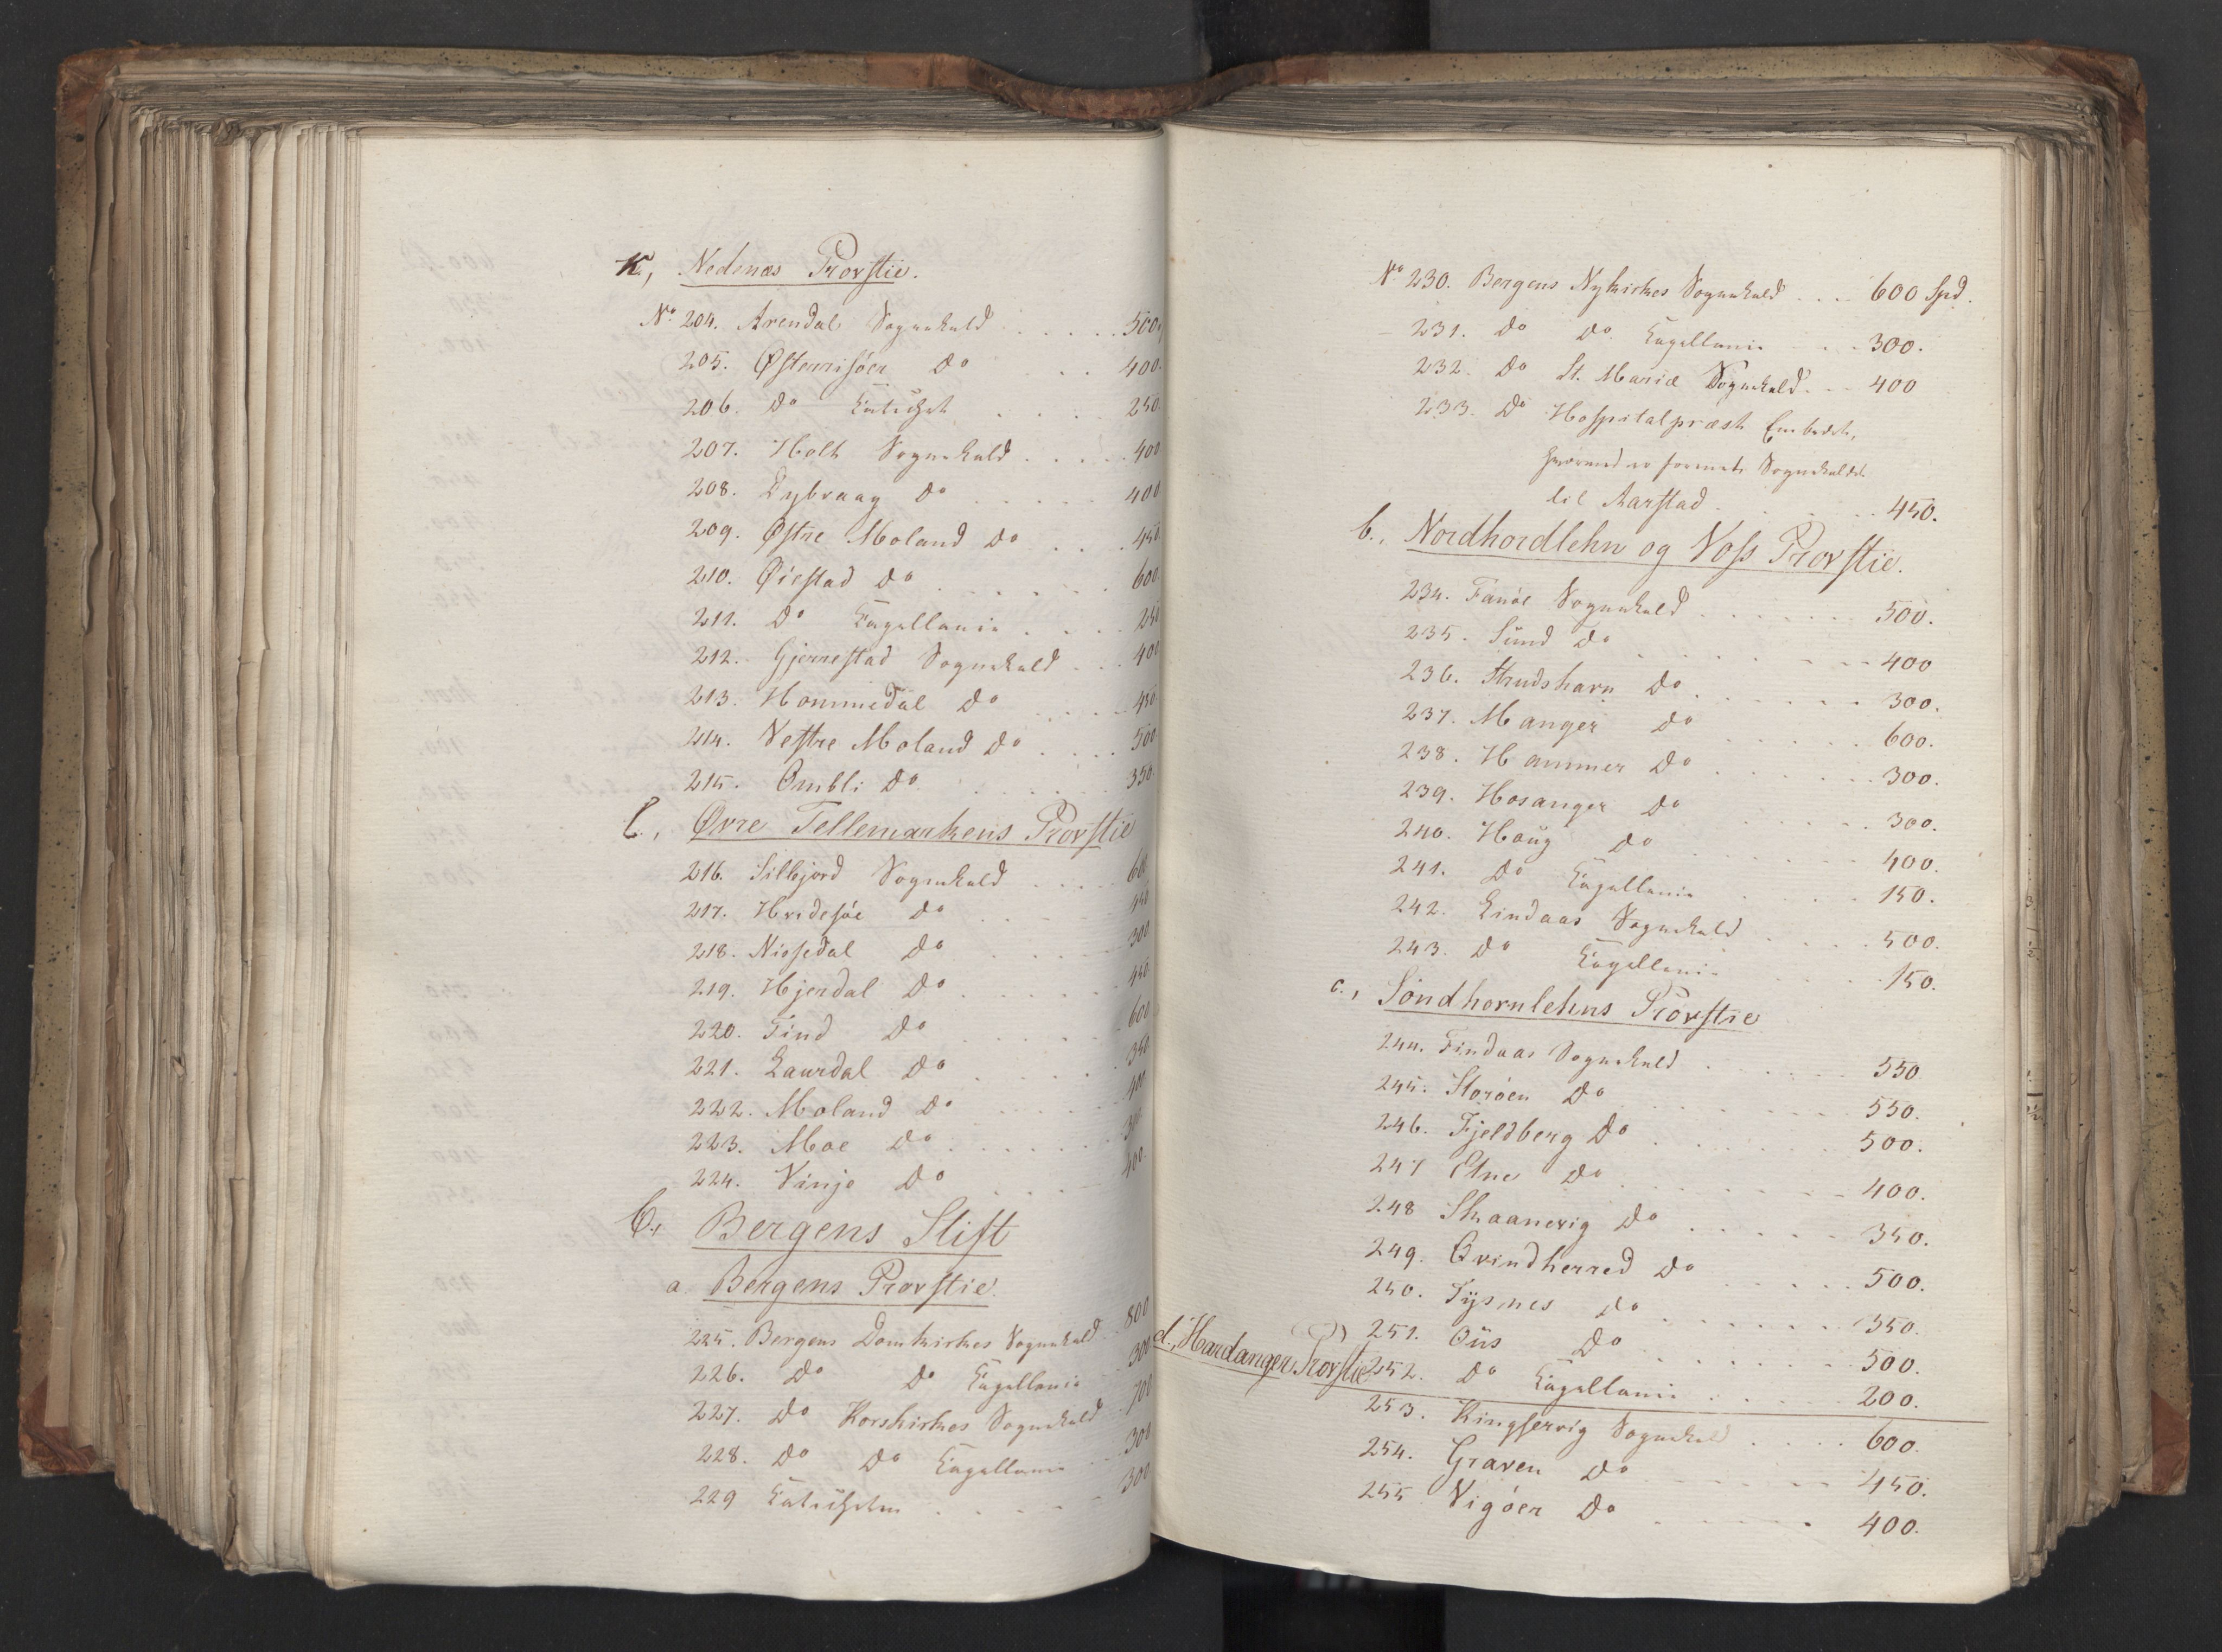 K, Nedenæs Provstie.
No 204. Arendal Sognekald . . . . 500
205. Østerrisöer do . . 400.
206. do Catechet . . . . 250.
207. Holt Sognekald . . . . 400
208. Dybvaag do . . . . . 400
209. Østre Moland do . . . 450
210. Øiestad do . . . . . . 600.
211. do Capellanie . . . . 250
212. Gjerrestad Sognekald . . . 400
213. Hommedal do . . . . 450
214. Vestre Moland do . . . . 500
215. Ombli do . . . . . 350.
l., Øvre Tellemarkens Provstie
216. Sillejord Sognekald . . . . 600
217. Hvidesöe do . . . 450
218. Nissedal do . . . . 300
219. Hjerdal do . . . . . 450.
220. Tind do . . . . 600
221. Laurdal do . . . . . 350.
222. Moland do . . . . 400
223. Moe do . . . . . . 300
224. Vinje do . . . 400.
C., Bergens Stift
a. Bergens Provstie.
225. Bergens Domkirkes Sognekald . 800
226. do do Capellanie 300
227. do Korskirkes Sognekald 700
228. do do Capellanie . . 300
229 Catecheten . . . . . 300
No 230. Bergens Nykirkes Sognekald . . . . 600 Spd.
- 231. do do. Capellanie . . . 300.
232. do St. Mariæ Sognekald . . . 400
233. do Hospitalpræst Embedet,
hvormed er forenet Sognekaldet
til Aarstad . . . . . 450.
b., Nordhordlehn og Voss Provstie.
234. Fanöe Sognekald . . . . . . 500.
235. Sund do . . . . . . . 400
236. Strudshavn do . . . . . . 300.
237. Manger do . . . . . 600.
238. Hammer do . . . . . . 300.
239. Hosanger do . . . . . . 300.
240. Houg do . . . . . . 400.
241. do Capellanie . . . . . 150.
242. Lindaas Sognekald . . . . 500.
243. do Capellanie . . . . 150.
c., Söndhornlehns Provstie
244. Findaas Sognekald . . . . . 550
245. Storöen do . . . . . . . 550.
246. Fjeldberg do . . . . . . 500.
247 Etne do . . . . . . . 400.
248 Skaanevig do . . . . . . 350.
249. Qvindherred do . . . . . 500.
250. Tysnes do . . . . . . . 350.
251. Ous do . . . . . . . 500.
252. do Capellanie . . . . . 200.
d., Hardanger Provstie
253. Kingservig Sognekald . . . . 600.
254. Graven do . . . . . 450.
255 Vigöer do . . . . . 400.